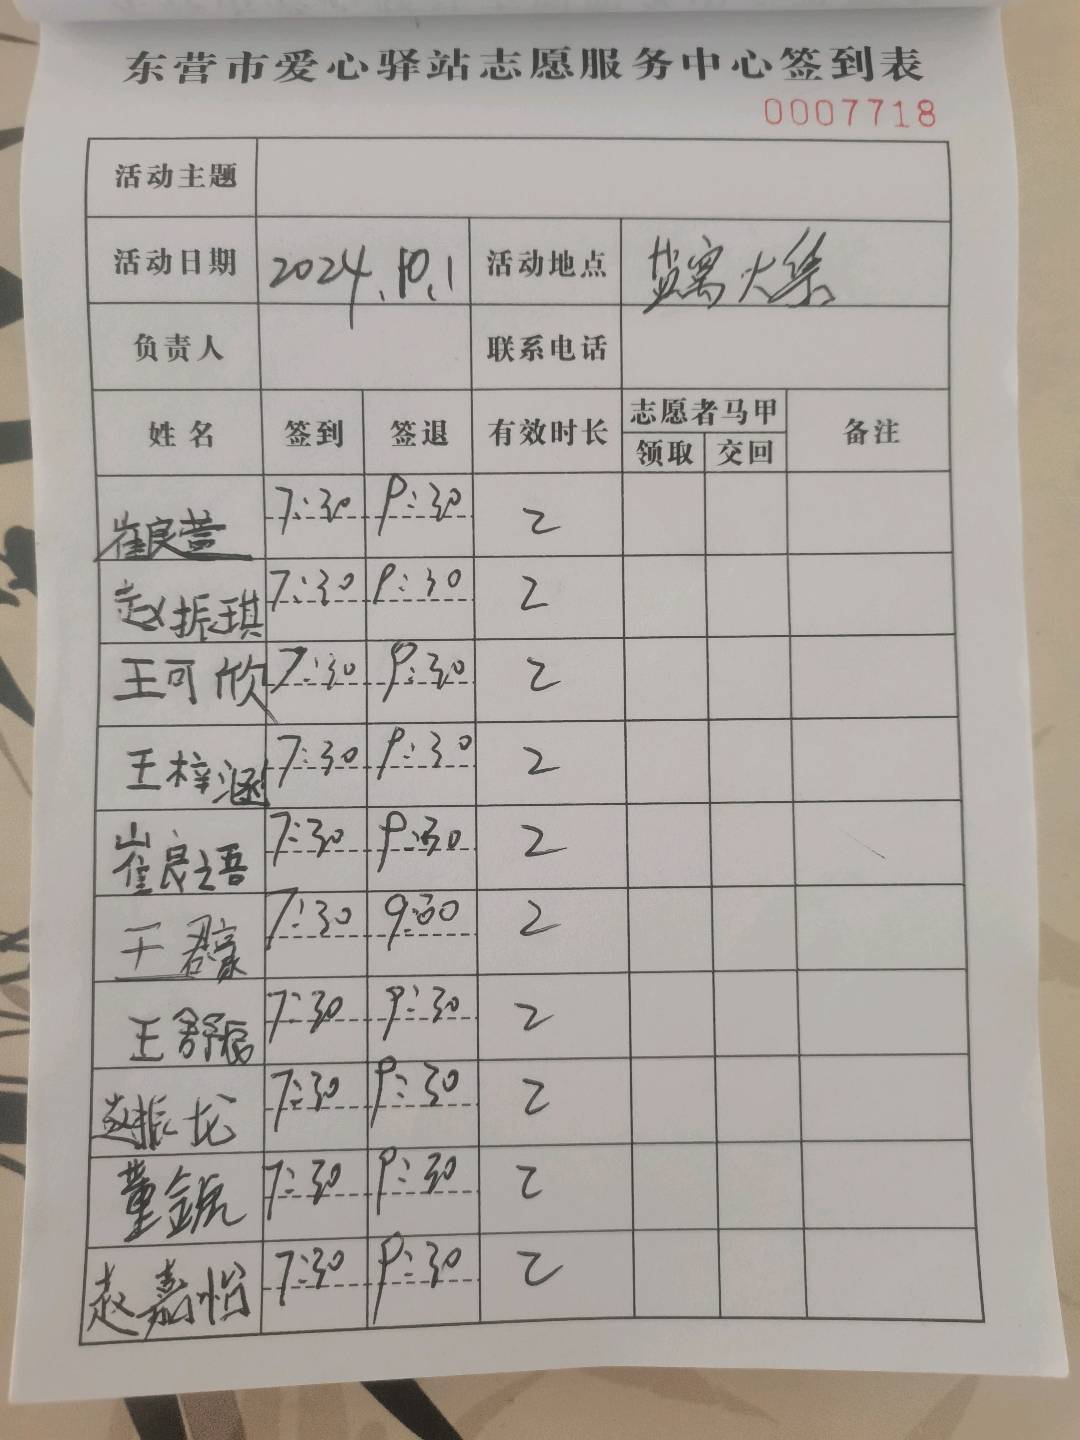 东营市爱心驿站志愿服务中心签到表
0007718
活动主题
活动日期 2024.10.1 活动地点 盐窝大集
负责人 联系电话
姓名 签到 签退 有效时长 志愿者马甲 备注
领取 交回
崔良萱 7:30 9:30 2
赵振琪 7:30 9:30 2
王可欣 7:30 9:30 2
王梓涵 7:30 9:30 2
崔良语 7:30 9:30 2
王君豪 7:30 9:30 2
王舒 7:30 9:30 2
赵振龙 7:30 9:30 2
董 7:30 9:30 2
赵嘉怡 7:30 9:30 2